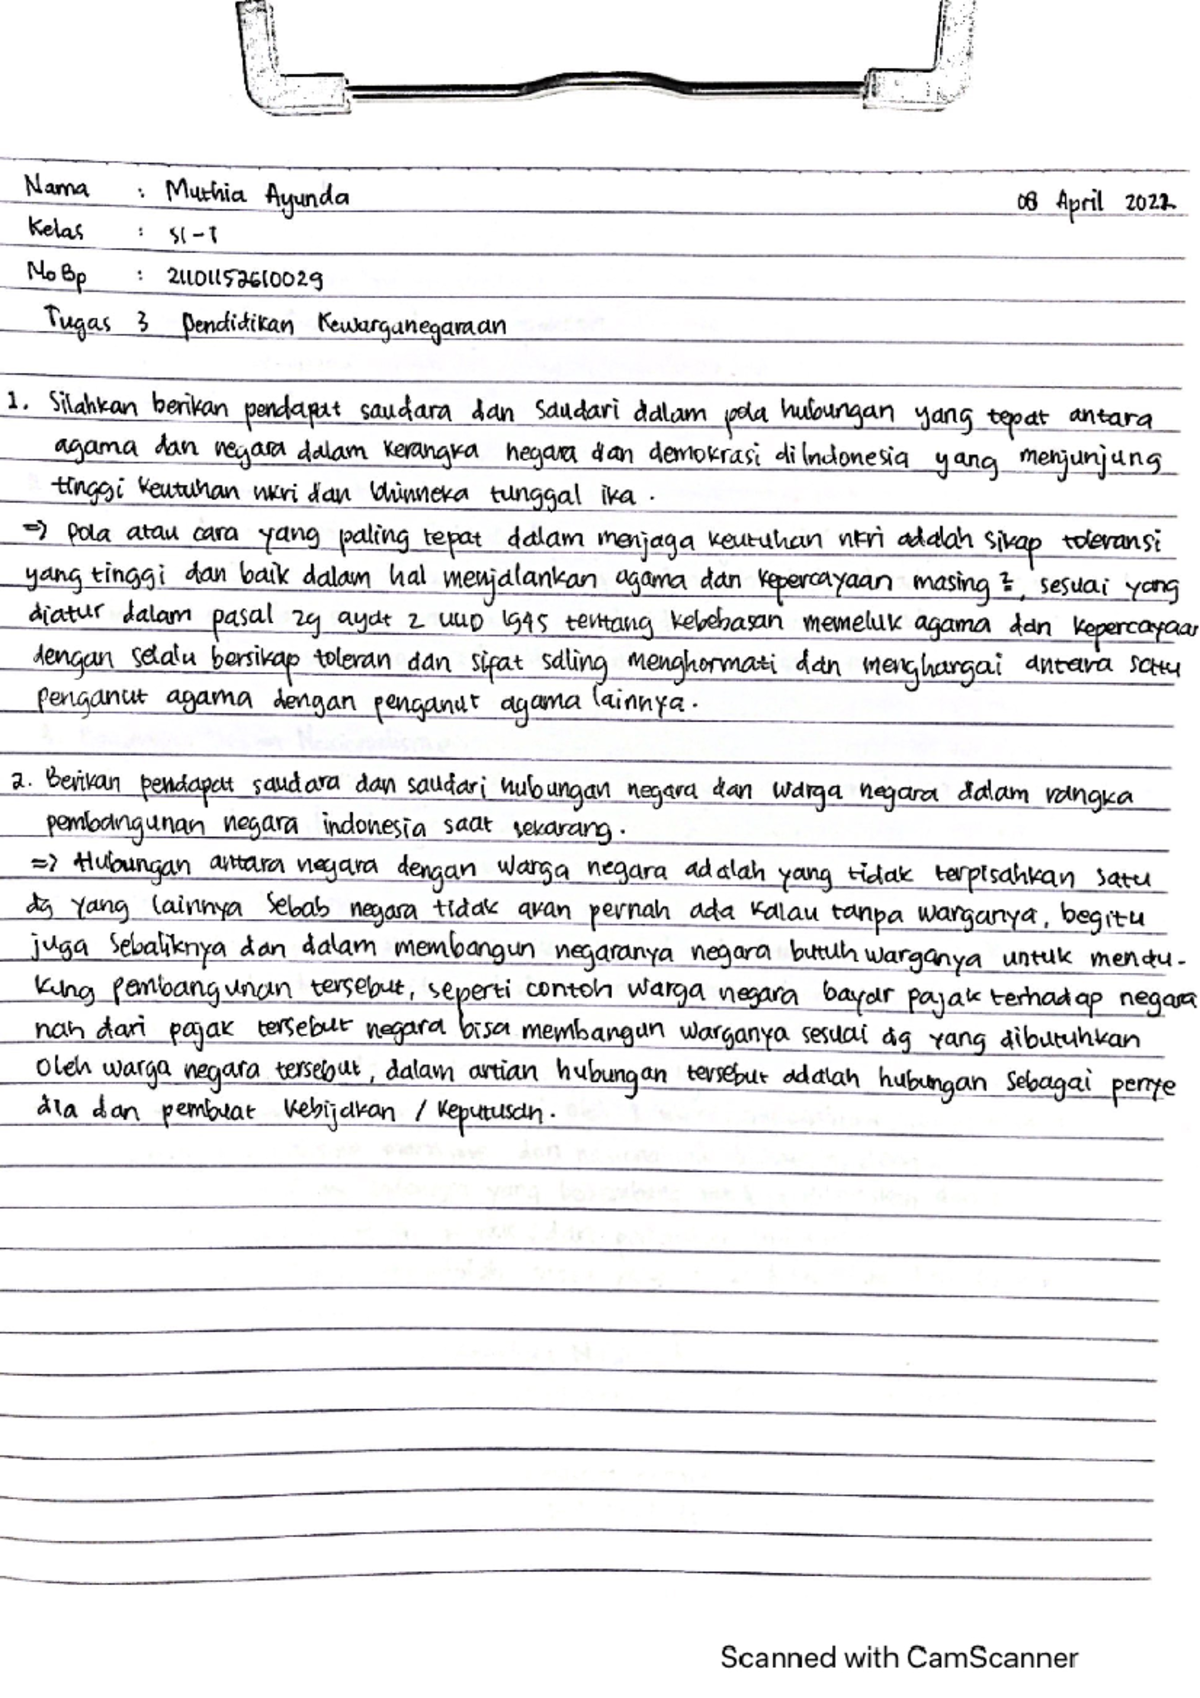 Nama : Muthia Ayunda 08 April 2022
Kelas : SI-1
No Bp : 21101152610029
Tugas 3 Pendidikan Kewarganegaraan
1. Silahkan berikan pendapat saudara dan Saudari dalam pola hubungan yang tepat antara
agama dan negara dalam kerangka negara dan demokrasi di Indonesia yang menjunjung
tinggi keutuhan nkri dan bhinneka tunggal ika.
=> Pola atau cara yang paling tepat dalam menjaga keutuhan nkri adalah sikap toleransi
yang tinggi dan baik dalam hal menjalankan agama dan kepercayaan masing 2, sesuai yang
diatur dalam pasal 29 ayat 2 UUD 1945 tentang kebebasan memeluk agama dan kepercayaan
dengan selalu bersikap toleran dan sifat saling menghormati dan menghargai antara satu
penganut agama dengan penganut agama lainnya.
2. Berikan pendapat saudara dan saudari hubungan negara dan warga negara dalam rangka
pembangunan negara indonesia saat sekarang.
=> Hubungan antara negara dengan warga negara adalah yang tidak terpisahkan satu
dg yang lainnya Sebab negara tidak akan pernah ada kalau tanpa warganya, begitu
juga sebaliknya dan dalam membangun negaranya negara butuh warganya untuk mendu-
kung pembangunan tersebut, seperti contoh warga negara bayar pajak terhadap negara
nah dari pajak tersebut negara bisa membangun warganya sesuai dg yang dibutuhkan
oleh warga negara tersebut, dalam artian hubungan tersebut adalah hubungan sebagai penye
dia dan pembuat kebijakan / keputusan.
Scanned with CamScanner